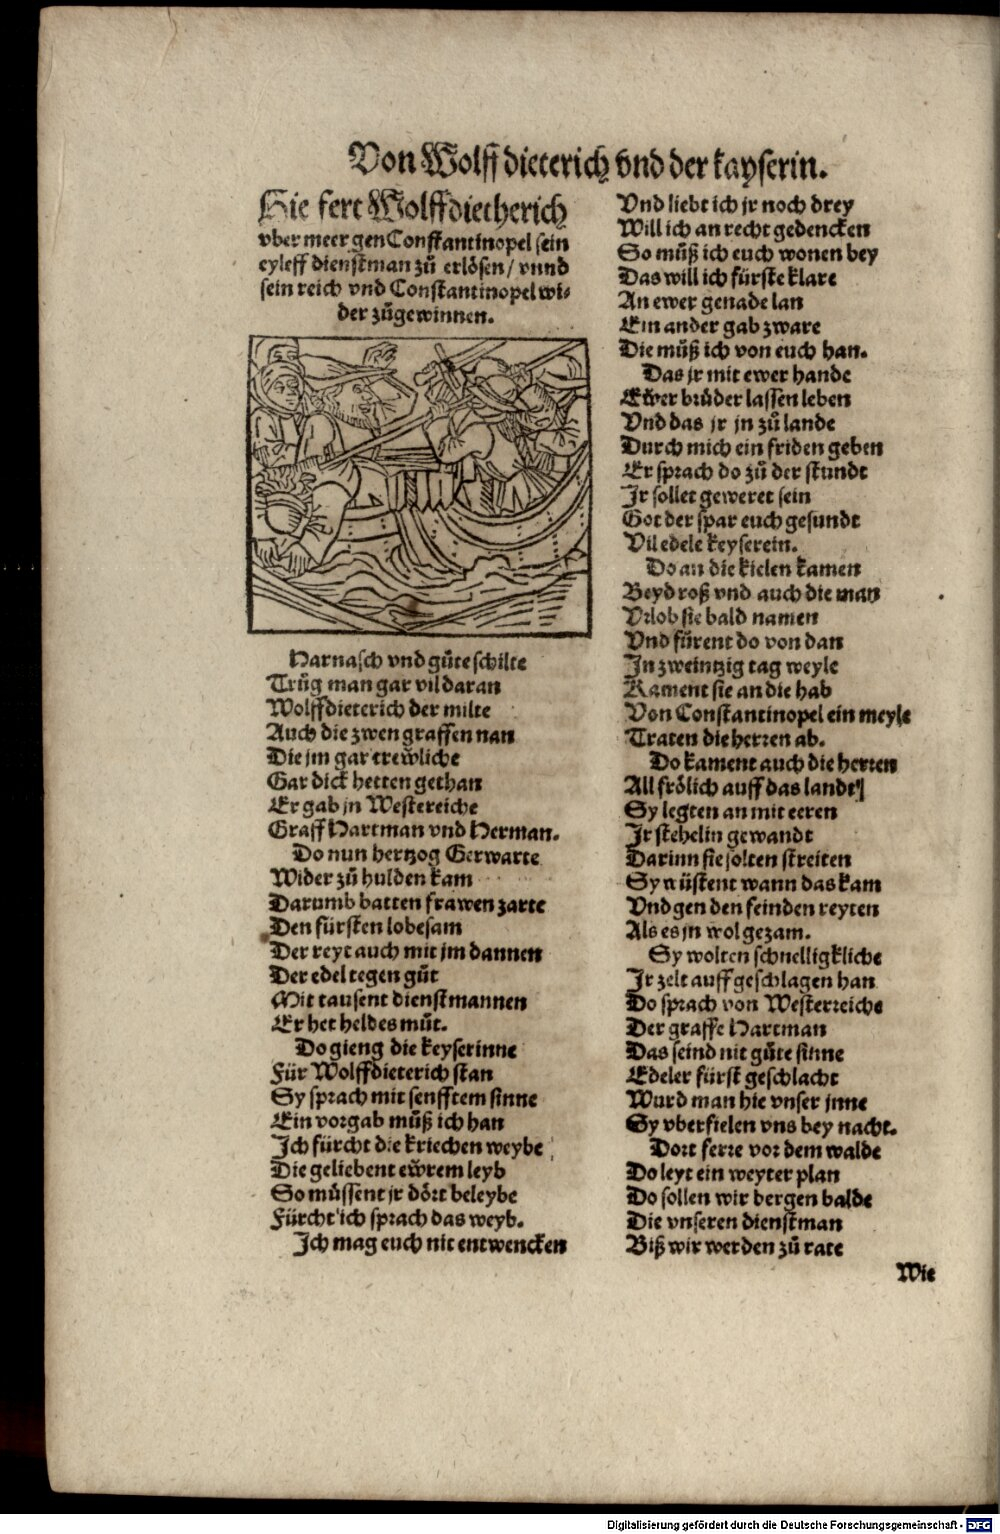 Von Wolffdieterich vnd der kayserin.
Hie fert Wolffdietherich
vber meer gen Constantinopel sein
eyleff dienstman zů erlösen / vnnd
sein reich vnd Constantinopel wi⸗
der zůgewinnen.
Harnasch vnd gůte schilte
Trůg man gar vil daran
Wolffdieterich der milte
Auch die zwen graffen nan
Die jm gar trewliche
Gar dick hetten gethan
Er gab jn Westereiche
Graff Hartman vnd Herman.
Do nun hertzog Gerwarte
Wider zů hulden kam
Darumb batten frawen zarte
Den fürsten lobesam
Der reyt auch mit jm dannen
Der edel tegen gůt
Mit tausent dienstmannen
Er het heldes můt.
Do gieng die keyserinne
Für Wolffdieterich stan
Sy sprach mit senfftem sinne
Ein vorgab můß ich han
Ich fürcht die kriechen weybe
Die geliebent ewrem leyb
So müssent jr dört beleybe
Fürcht ich sprach das weyb.
Ich mag euch nit entwencken
Vnd liebt ich jr noch drey
Will ich an recht gedencken
So můß ich euch wonen bey
Das will ich fürste klare
An ewer genade lan
Ein ander gab zware
Die můß ich von euch han.
Das jr mit ewer hande
Ewer brůder lassen leben
Vnd das jr jn zů lande
Durch mich ein friden geben
Er sprach do zů der stundt
Jr sollet geweret sein
Got der spar euch gesundt
Vil edele keyserein.
Do an die kielen kamen
Beyd roß vnd auch die man
Vrlob sie bald namen
Vnd fůrent do von dan
In zweintzig tag weyle
Kament sie an die hab
Von Constantinopel ein meyle
Traten die herren ab.
Do kament auch die herren
All frölich auff das landt
Sy legten an mit eeren
Jr stehelin gewandt
Darinn sie solten streiten
Sy wüstent wann das kam
Vnd gen den feinden reyten
Als es jn wol gezam.
Sy wolten schnelligkliche
Jr zelt auff geschlagen han
Do sprach von Westerreiche
Der graffe Hartman
Das seind nit gůte sinne
Edeler fürst geschlacht
Wurd man hie vnser jnne
Sy vberfielen vns bey nacht.
Dort ferre vor dem walde
Do leyt ein weyter plan
Do sollen wir bergen balde
Die vnseren dienstman
Biß wir werden zů rate
Wie
Digitalisierung gefördert durch die Deutsche Forschungsgemeinschaft - DFG